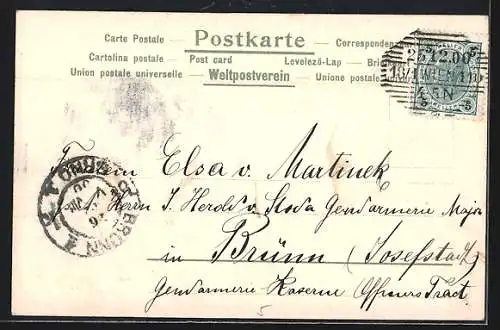 Carte Postale — Postkarte — Correspondenz
Cartolina postale — Post card — Levelező-Lap —
Union postale universelle — Weltpostverein — Unione postale
25 12.00
WIEN
5 N
BRÜNN
BRNO
Elsa v. Martinek
Herrn J. Herold v. Stoda Gendarmerie Major
in Brünn (Josefstadt)
Gendarmerie Kaserne Officiers Tract.
5